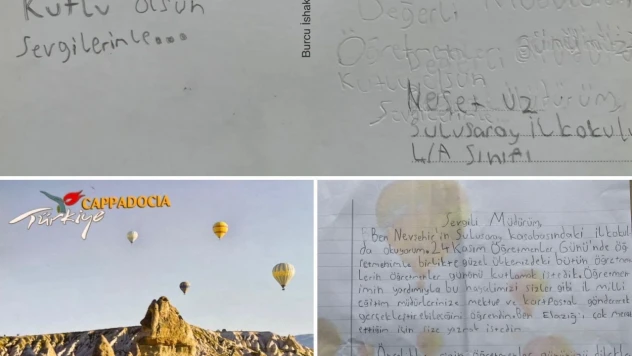 Kutlu olsun
Sevgilerinle...
Burcu İshak
Değerli
Öğretmenler Günü'nüz
Kutlu olsun
Neşet UZ
Sulusaray İLkokulu
4/A SINIFI
CAPPADOCIA
Türkiye
Sevgili Müdürüm,
Ben Nevşehir'in Sulusaray kasabasındaki ilkokul
da okuyorum. 24 Kasım Öğretmenler Günü'nde öğ
retmenimle birlikte güzel ülkemizdeki bütün öğretmen
lerin öğretmenler gününü kutlamak istedik. Öğretmen
imin yardımıyla bu hayalimizi sizler gibi il milli
eğitim müdürlerimize mektup ve kartpostal göndererek
gerçekleştirebileceğimi öğrendim. Ben Elazığ'ı çok merak
ettiğim için size yazmak istedim.